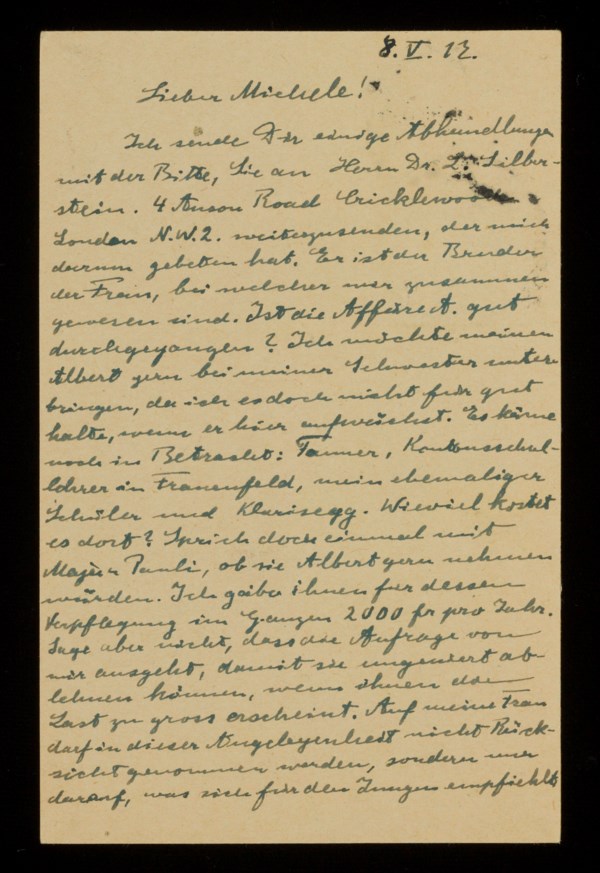 8. V. 17.
Lieber Michele!
Ich sende Dir einige Abhandlungen
mit der Bitte, Sie an Herrn Dr. L. Silber-
stein. 4 Anson Road Cricklewood
London N.W.2. weiterzusenden, der mich
darum gebeten hat. Er ist der Bruder
der Frau, bei welcher wir zusammen
gewesen sind. Ist die Affäre A. gut
durchgegangen? Ich möchte meinen
Albert gern bei meiner Schwester unter-
bringen, da ich es doch nicht für gut
halte, wenn er hier aufwächst. Es käme
noch in Betracht: Tanner, Kantonsschul-
lehrer in Frauenfeld, mein ehemaliger
Schüler und Glarisegg. Wieviel kostet
es dort? Sprich doch einmal mit
Maja u Pauli, ob sie Albert gern nehmen
würden. Ich gäbe ihnen für dessen
Verpflegung im Ganzen 2000 fr pro Jahr.
Sage aber nicht, dass die Anfrage von
mir ausgeht, damit sie ungeniert ab-
lehnen können, wenn ihnen die
Last zu gross erscheint. Auf meine Frau
darf in dieser Angelegenheit nicht Rück-
sicht genommen werden, sondern nur
darauf, was sich für den Jungen empfiehlt.